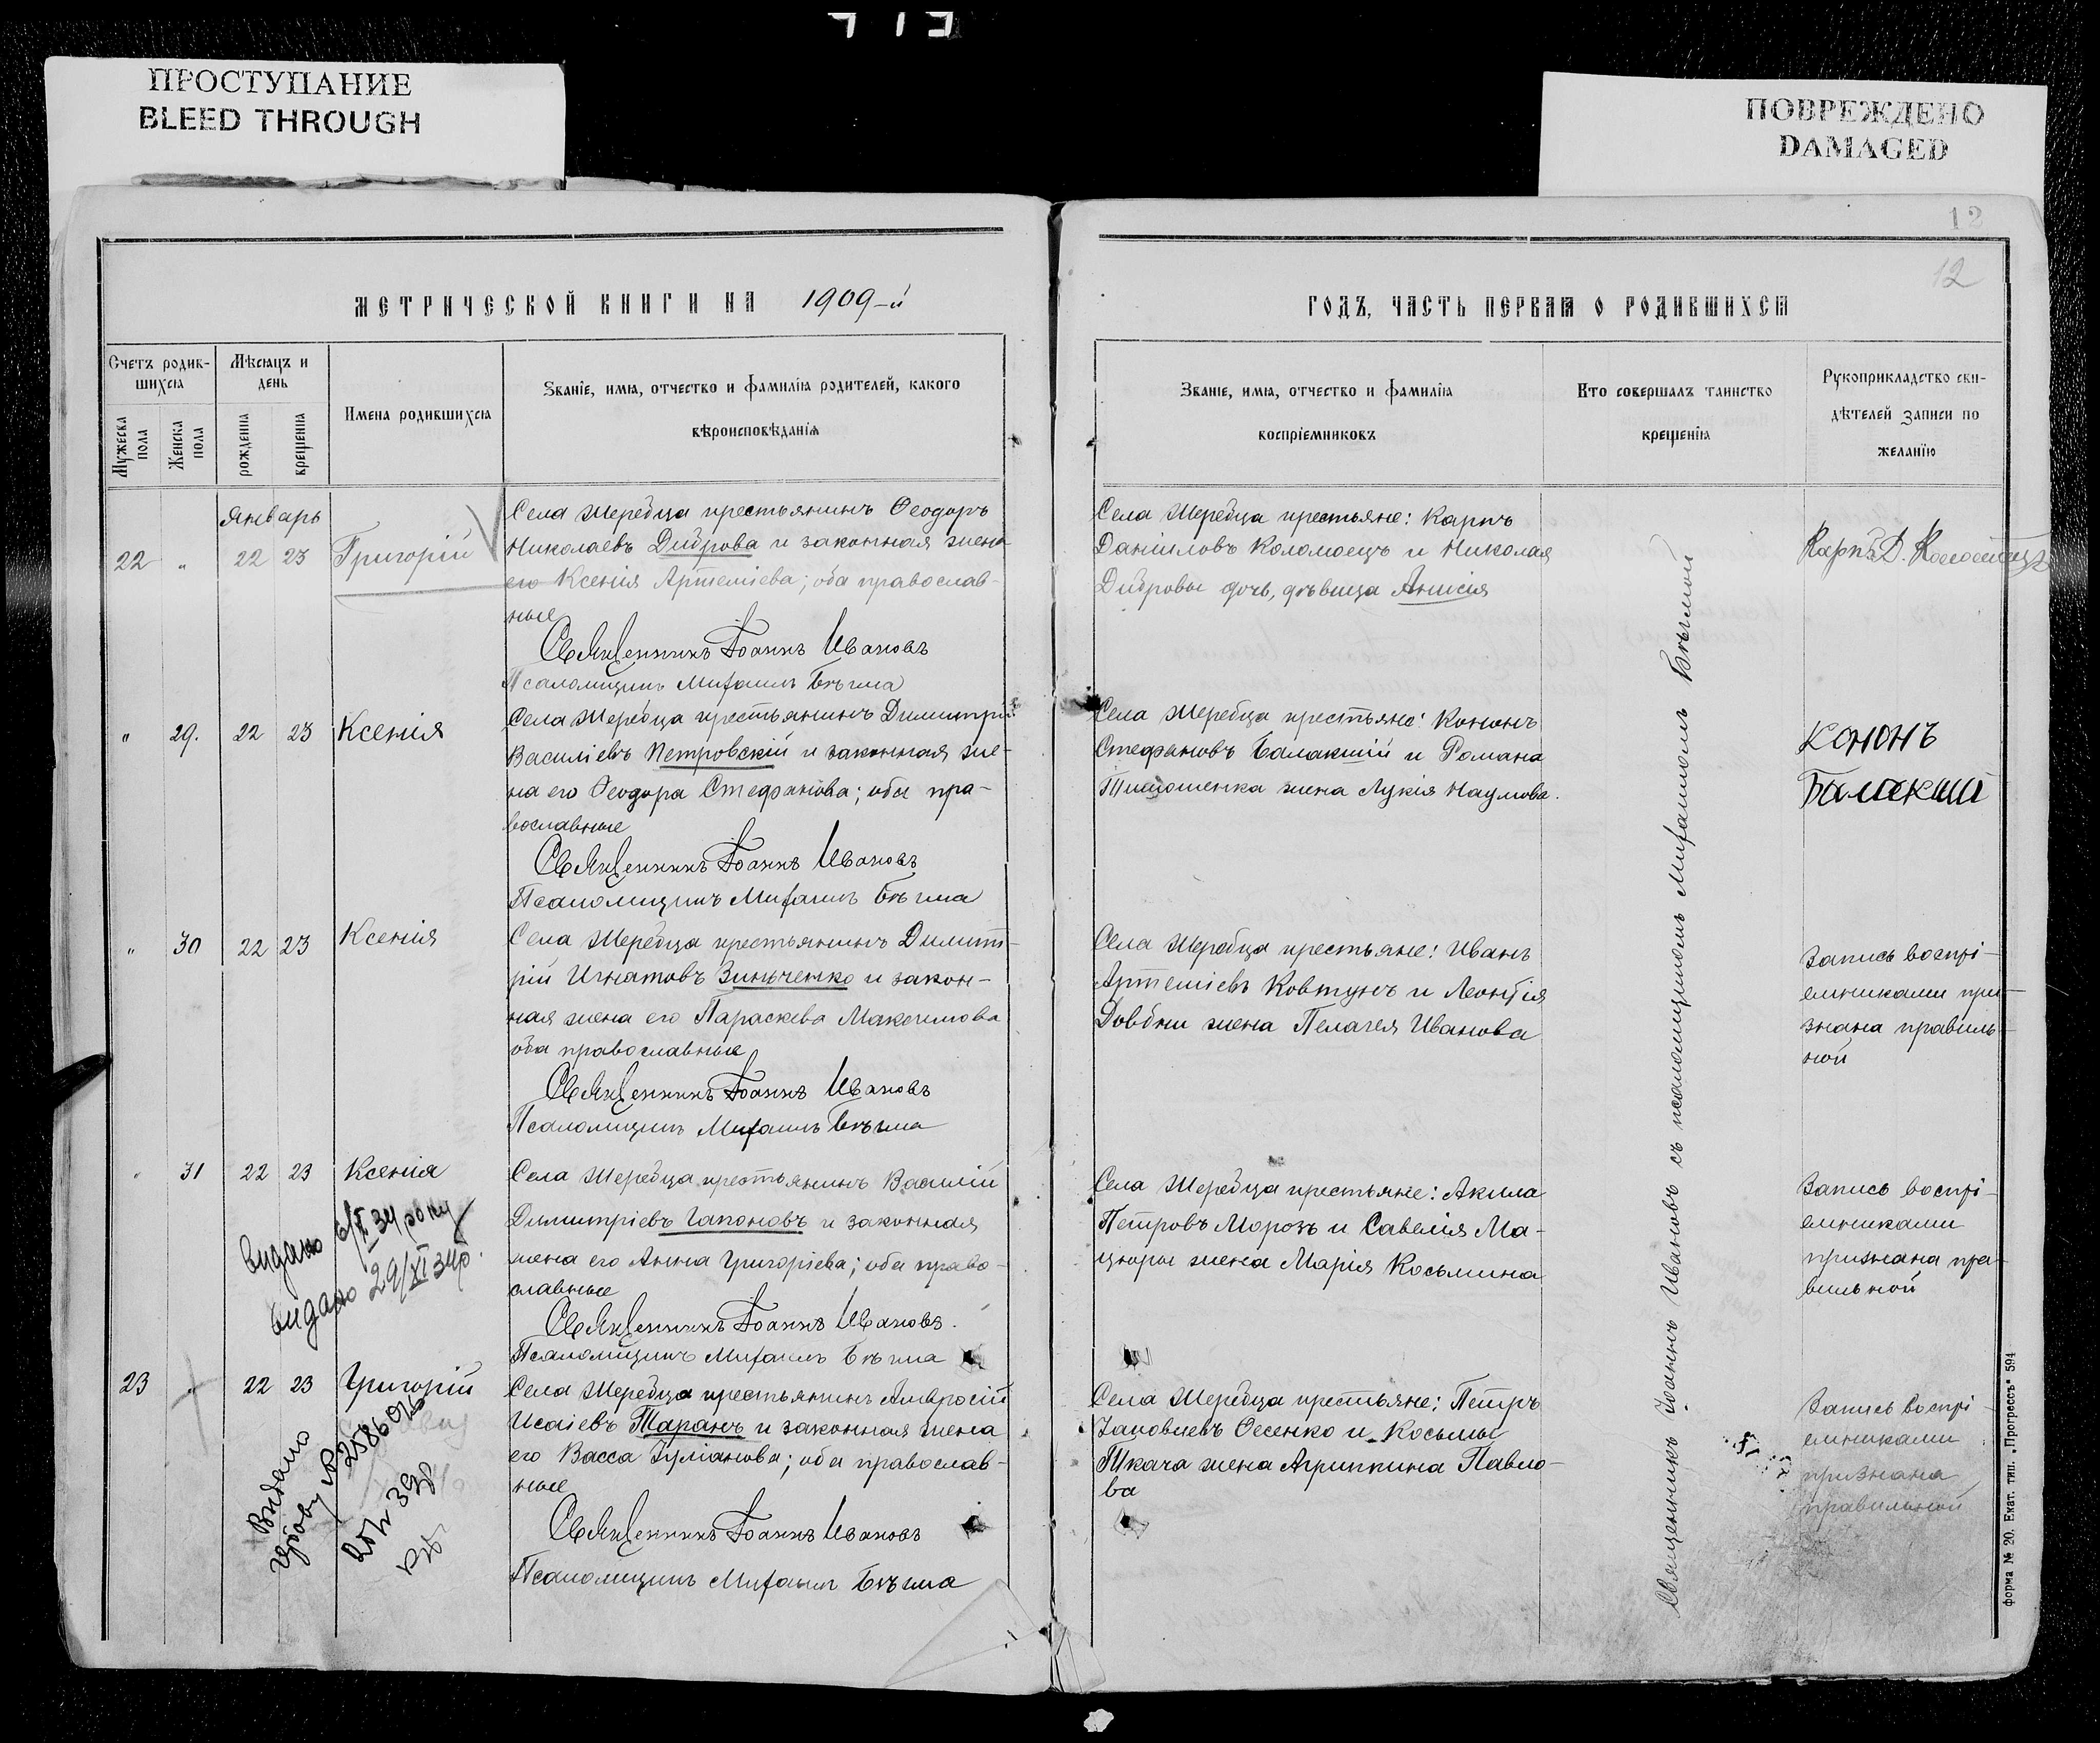 ПРОСТУПАНИЕ
BLEED THROUGH
ПОВРЕЖДЕНО
DAMAGED
12
12
МЕТРИЧЕСКОЙ КНИГИ НА 1909-й
ГОДЪ, ЧАСТЬ ПЕРВАЯ О РОДИВШИХСЯ
Счетъ родив-
шихся
Мужеска пола
Женска пола
Мѣсяцъ и
день
рожденія
крещенія
Имена родившихся
Званіе, имя, отчество и фамилія родителей, какого
вѣроисповѣданія
Званіе, имя, отчество и фамилія
воспріемниковъ
Кто совершалъ таинство
крещенія
Рукоприкладство сви-
дѣтелей записи по
желанію
Январь
22 " 22 23 Григорій
Села Жеребца крестьянинъ Ѳеодоръ
Николаевъ Диброва и законная жена
его Ксенія Артеміева; оба православ-
ные
Священникъ Іоаннъ Ивановъ
Псаломщикъ Михаилъ Бѣгма
Села Жеребца крестьяне: Карпъ
Даніиловъ Коломоецъ и Николая
Дибровы дочь, дѣвица Анисія
Карпъ Д. Коломоецъ
" 29. 22 23 Ксенія
Села Жеребца крестьянинъ Димитрій
Василіевъ Петровскій и законная же-
на его Ѳеодора Стефанова; оба пра-
вославные
Священникъ Іоаннъ Ивановъ
Псаломщикъ Михаилъ Бѣгма
Села Жеребца крестьяне: Кононъ
Стефановъ Балакшій и Романа
Тимошенка жена Лукія Наумова.
Кононъ
Балакший
" 30 22 23 Ксенія
Села Жеребца крестьянинъ Димит-
рій Игнатовъ Зинченко и закон-
ная жена его Параскева Максимова
оба православные
Священникъ Іоаннъ Ивановъ
Псаломщикъ Михаилъ Бѣгма
Села Жеребца крестьяне: Иванъ
Артеміевъ Ковтунъ и Леонтія
Довбни жена Пелагея Иванова
Запись воспрі-
емниками при-
знана правиль-
ной
" 31 22 23 Ксенія
Села Жеребца крестьянинъ Василій
Димитріевъ Гапоновъ и законная
жена его Анна Григоріева; оба право-
славные
Священникъ Іоаннъ Ивановъ.
Псаломщикъ Михаилъ Бѣгма
Села Жеребца крестьяне: Акила
Петровъ Морозъ и Савелія Ма-
цюры жена Марія Косьмина
Запись воспрі-
емниками
признана пра-
вильной
видано 34 року
видано 29/XI 34р.
23 " 22 23 Григорій
Села Жеребца крестьянинъ Амвросій
Исаіевъ Таранъ и законная жена
его Васса Іуліанова; оба православ-
ные
Священникъ Іоаннъ Ивановъ
Псаломщикъ Михаилъ Бѣгма
Села Жеребца крестьяне: Петръ
Іаковлевъ Ѳесенко и Косьмы
Ткача жена Агриппина Павло-
ва
Запись воспрі-
емниками
признана
правильной
Видано
Священникъ Іоаннъ Ивановъ съ псаломщикомъ Михаиломъ Бѣгмой
форма № 20. Екат. тип. „Прогрессъ“ 594